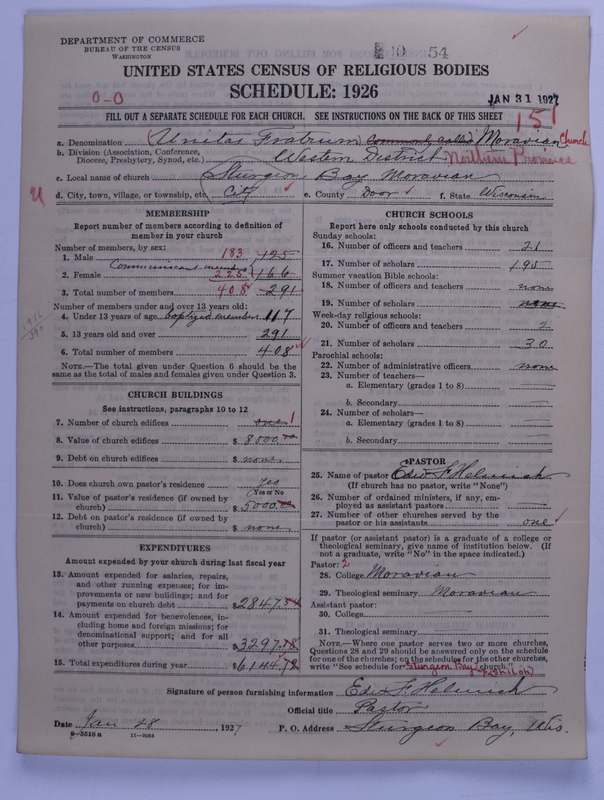 DEPARTMENT OF COMMERCE
BUREAU OF THE CENSUS
WASHINGTON
10 54
UNITED STATES CENSUS OF RELIGIOUS BODIES
SCHEDULE: 1926
0-0
JAN 31 1927
151
FILL OUT A SEPARATE SCHEDULE FOR EACH CHURCH. SEE INSTRUCTIONS ON THE BACK OF THIS SHEET
a. Denomination (Unitas Fratrum) Commonly called Moravian Church
b. Division (Association, Conference, Diocese, Presbytery, Synod, etc.) Western District Northern Province
c. Local name of church Sturgeon Bay Moravian
d. City, town, village, or township, etc. City e. County Door f. State Wisconsin
MEMBERSHIP
Report number of members according to definition of member in your church
Number of members, by sex:
1. Male 183 125
Communicant members
2. Female 225 166
3. Total number of members 408 291
Number of members under and over 13 years old:
4. Under 13 years of age baptized members 117
5. 13 years old and over 291
6. Total number of members 408
NOTE.—The total given under Question 6 should be the same as the total of males and females given under Question 3.
CHURCH BUILDINGS
See instructions, paragraphs 10 to 12
7. Number of church edifices one 1
8. Value of church edifices $ 8000.00
9. Debt on church edifices $ none
10. Does church own pastor's residence Yes
(Yes or No)
11. Value of pastor's residence (if owned by church) $ 5000.00
12. Debt on pastor's residence (if owned by church) $ none
EXPENDITURES
Amount expended by your church during last fiscal year
13. Amount expended for salaries, repairs, and other running expenses; for improvements or new buildings; and for payments on church debt $ 2847.54
14. Amount expended for benevolences, including home and foreign missions; for denominational support; and for all other purposes $ 3297.18
15. Total expenditures during year $ 6144.72
CHURCH SCHOOLS
Report here only schools conducted by this church
Sunday schools:
16. Number of officers and teachers 21
17. Number of scholars 195
Summer vacation Bible schools:
18. Number of officers and teachers none
19. Number of scholars none
Week-day religious schools:
20. Number of officers and teachers 2
21. Number of scholars 30
Parochial schools:
22. Number of administrative officers none
23. Number of teachers—
a. Elementary (grades 1 to 8)
b. Secondary
24. Number of scholars—
a. Elementary (grades 1 to 8)
b. Secondary
PASTOR
25. Name of pastor Edw. F. Helmich
(If church has no pastor, write "None")
26. Number of ordained ministers, if any, employed as assistant pastors
27. Number of other churches served by the pastor or his assistants one
If pastor (or assistant pastor) is a graduate of a college or theological seminary, give name of institution below. (If not a graduate, write "No" in the space indicated.)
Pastor: 2
28. College Moravian
29. Theological seminary Moravian
Assistant pastor:
30. College
31. Theological seminary
NOTE.—Where one pastor serves two or more churches, Questions 28 and 29 should be answered only on the schedule for one of the churches; on the schedule for the other churches, write "See schedule for Sturgeon Bay church."
Signature of person furnishing information Edw. F. Helmich
Official title Pastor
Date Jan 28 1927 P. O. Address Sturgeon Bay, Wis.
8-5518a 11-9084